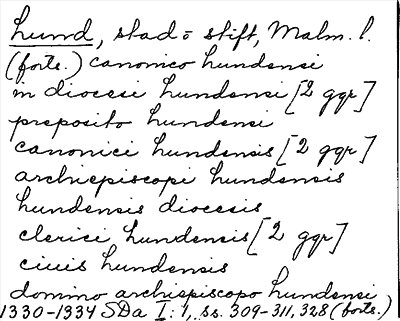 Lund, stad o stift, Malm. l.
(forts.) canonico lundensi
in diocesi lundensi [2 ggr]
preposito lundensi
canonici lundensis [2 ggr]
archiepiscopi lundensis
lundensis diocesis
clerici lundensis [2 ggr]
ciuis lundensis
domino archiepiscopo lundensi
1330-1334 SDa I:1, ss. 309-311, 328 (forts.)